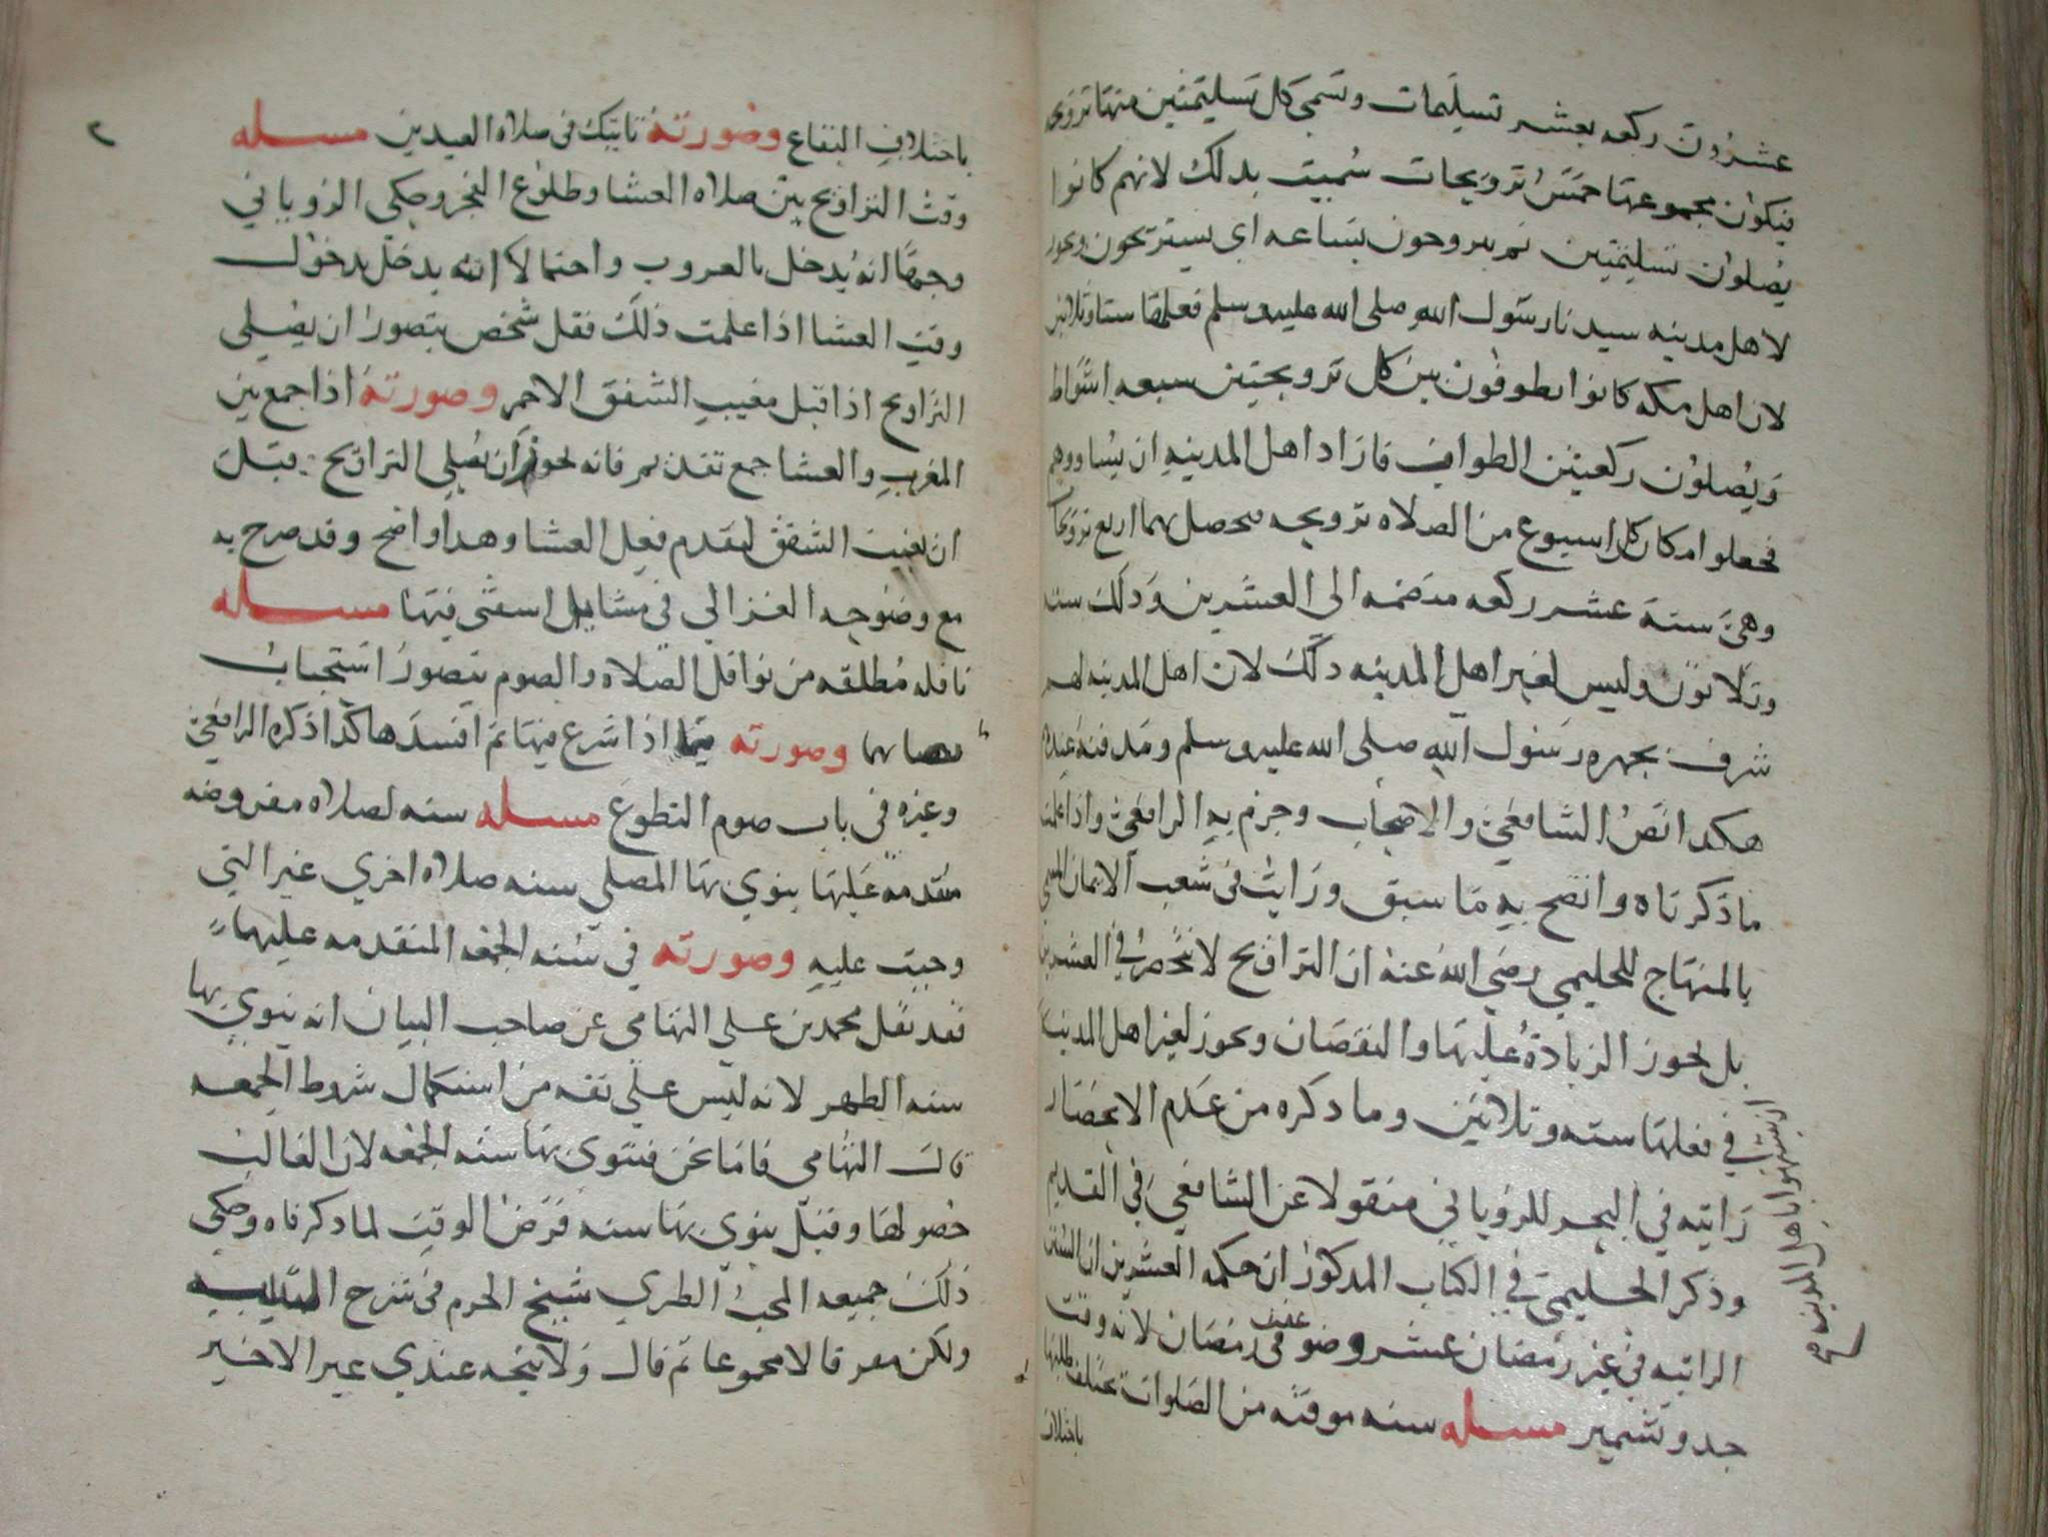 عشرون ركعه بعشر تسليمات وتسمى كل تسليمتين منها ترويحه
فيكون مجموعها خمس ترويحات سميت بدلك لانهم كانوا
يصلون تسليمتين ثم يتروحون بساعه اي يستريحون ويجوز
لاهل مدينه سيدنا رسول الله صلى الله عليه وسلم فعلها ستا وثلاثين
لان اهل مكه كانوا يطوفون بين كل ترويحتين سبعه اشواط
ويصلون ركعتين الطواف فاراد اهل المدينه ان يساووهم
فجعلوا مكان كل اسبوع من الصلاه ترويحه فحصل بهما اربع ترويحات
وهي ستة عشر ركعه مضمه الى العشرين وذلك سته
وثلاثون وليس لغير اهل المدينه دلك لان اهل المدينه لهم
شرف بجهره رسول الله صلى الله عليه وسلم ومدفنه عندهم
هكدا نص الشافعي والاصحاب وجزم به الرافعي واذا علمت
ما ذكرناه واتضح به ما سبق ورايت في شعب الايمان المسمى
بالمنهاج للحليمي رضي الله عنه ان التراويح لا تنحصر في العشرين
بل يجوز الزيادة عليها والنقصان ويجوز لغير اهل المدينه
ان يتشبهوا باهل المدينه صح
في فعلها سته وثلاثين وما دكره من عدم الانحصار
رايته في البحر للروياني منقولا عن الشافعي في القديم
وذكر الحليمي في الكتاب المدكور ان حكمه العشرين ان السنن
الراتبه في غير رمضان عشر وضوعفت في رمضان لانه وقت
جد وتشمير مسله سنه موقته من الصلوات تختلف طلبها
باختلاف
٢
باختلاف البقاع وصورته تاتيك في صلاه العيدين مسله
وقت التراويح بين صلاه العشا وطلوع الفجر وحكى الروياني
وجها انه يدخل بالغروب واحتمالا انه يدخل بدخول
وقت العشا اذا علمت ذلك فقل شخص يتصور ان يصلي
التراويح اذا قبل مغيب الشفق الاحمر وصورته اذا جمع بين
المغرب والعشا جمع تقديم فانه يجوز ان يصلي التراويح قبل
ان يغيب الشفق لتقدم فعل العشا وهدا واضح وقد صرح به
مع وضوحه الغزالي في مسايل استفتى فيها مسله
نافله مطلقه من نوافل الصلاه والصوم يتصور استحباب
قضايها وصورته فيما اذا شرع فيها ثم افسدها كذا ذكره الرافعي
وغيره في باب صوم التطوع مسله سنه لصلاه مفروضه
متقدمه عليها ينوي بها المصلي سنه صلاه اخري غير التي
وجبت عليه وصورته في سنه الجمعه المتقدمه عليها
فقد نقل محمد بن علي التهامي عن صاحب البيان انه ينوي بها
سنه الظهر لانه ليس على ثقه من استكمال شروط الجمعه
قال التهامي فاما نحن فننوي بها سنه الجمعه لان الغالب
حصولها وقيل ينوي بها سنه فرض الوقت لما ذكرناه وحكى
ذلك جميعه المحب الطبري شيخ الحرم في شرح التنبيه
ولكن مفرقا لا مجموعا ثم قال ولا يتجه عندي غير الاخير